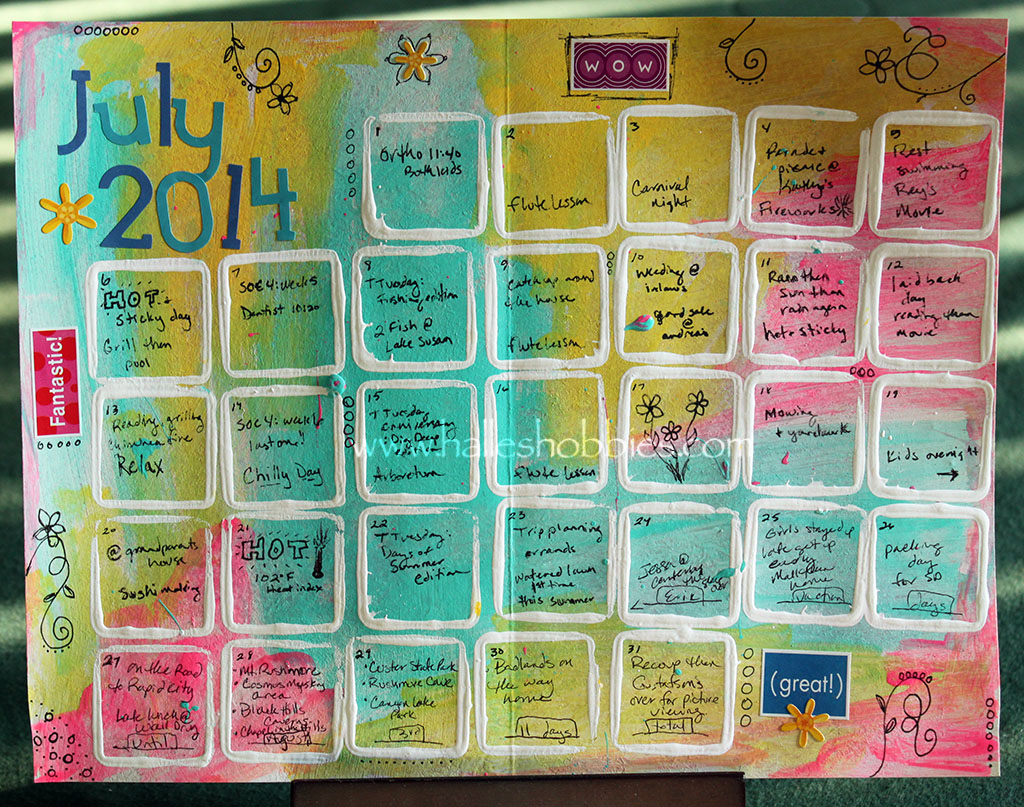 July
2014
WOW
1
Ortho 11:40
Both kids
2
flute lesson
3
Carnival
night
4
Parade +
picnic @
Kathy's
Fireworks
5
Rest
swimming
Rey's
Movie
6
HOT +
Sticky day
Grill then
pool
7
SOE 4: week 5
Dentist 10:20
8
T Tuesday:
Fishing edition
2 Fish @
Lake Susan
9
Catch up around
the house
flute lesson
10
weeding @
inlaws
gard sale
@
andrea's
11
Rain then
sun then
rain again
hot + sticky
12
laid back
day
reading then
movie
Fantastic!
13
Reading, grilling
chiminea fire
Relax
14
SOE 4: week 6
last one!!
Chilly Day
15
T Tuesday
anniversary
@ Dig Deep
Arboretum
16
flute lesson
17
18
Mowing
+ yardwork
19
Kids overnight
www.halleshobbies.com
20
@ grandparents
house
Sushi making
21
HOT
102°F
heat index
22
T Tuesday:
Days of
Summer
edition
23
Trip planning
errands
watered lawn
1st time
this summer
24
Jessa @
Canterbury
Eric
25
Girls stayed up
late get up
early
home
Vacation
26
packing
day
for SD
days
27
on the Road
to Rapid City
Late lunch @
Wall Drug
Until
28
• Mt. Rushmore
• Cosmos Mystery
area
• Black Hills
Caverns
• Chapel in the Hills
August
29
• Custer State Park
• Rushmore Cave
• Canyon Lake
Park
3rd
30
Badlands on
the way
home
11 days
31
Recoup then
Gustafson's
over for picture
viewing
total
(great!)